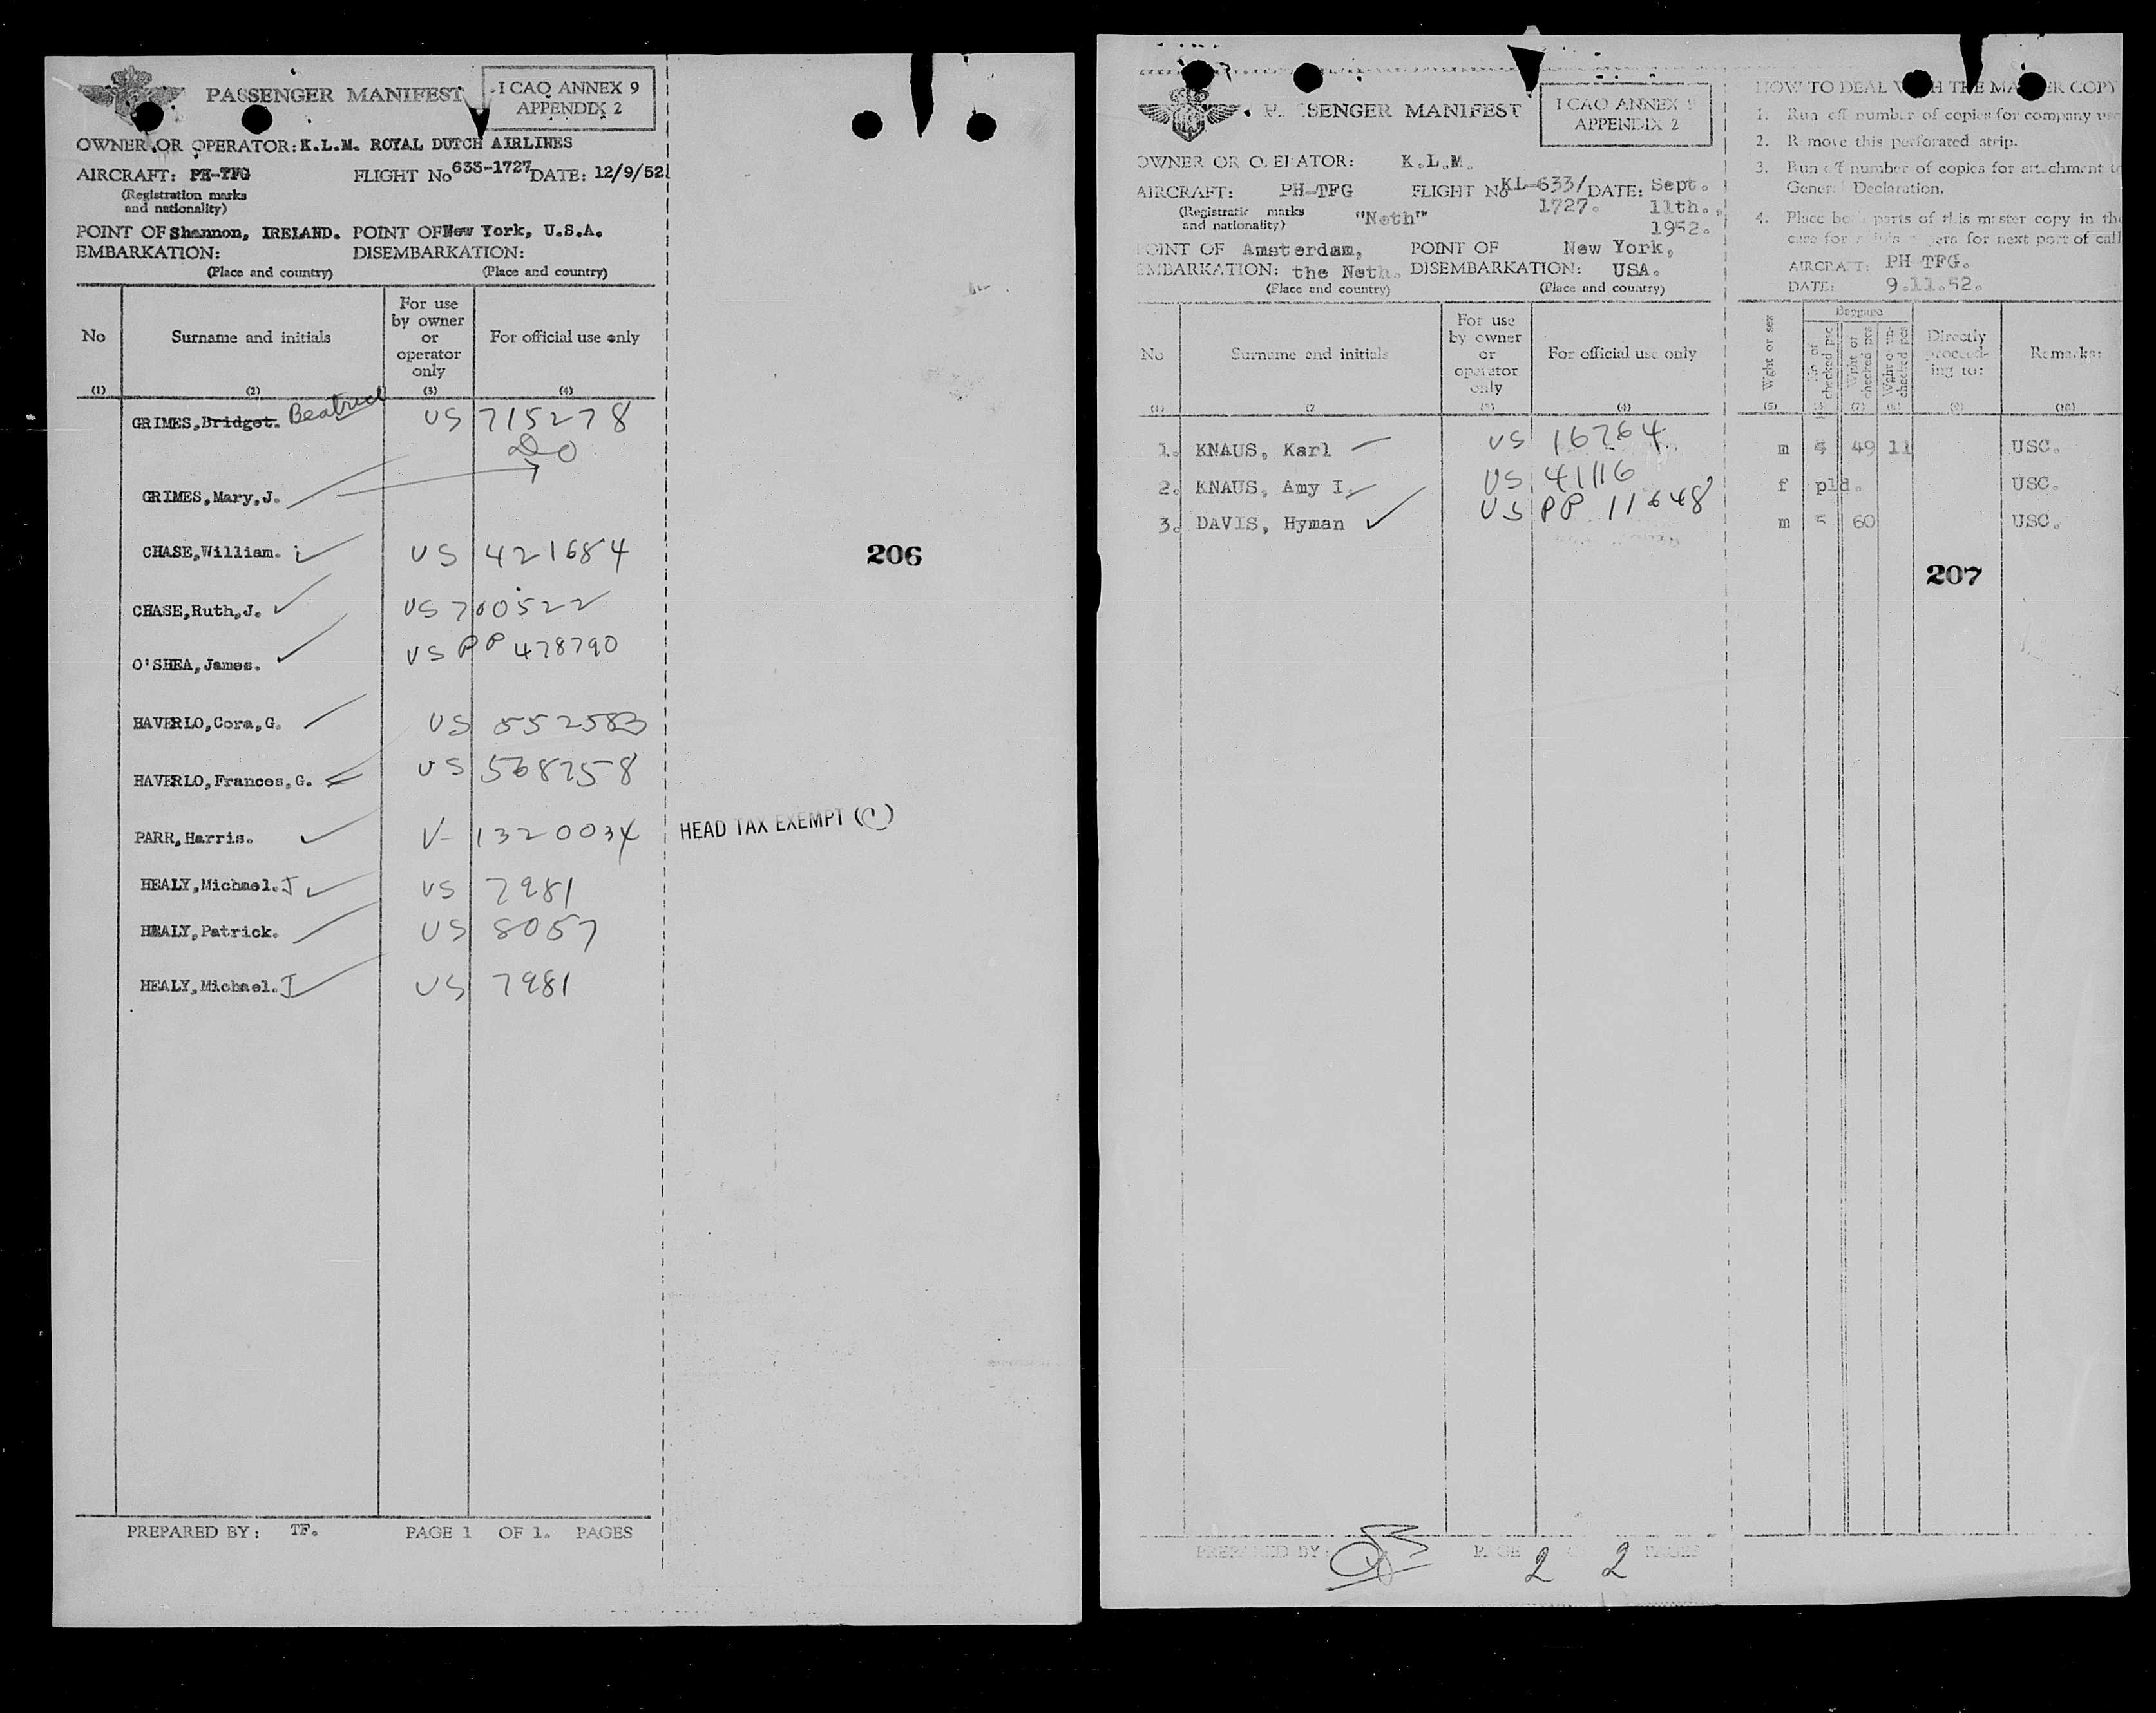 PASSENGER MANIFEST
I CAO ANNEX 9
APPENDIX 2
OWNER OR OPERATOR: K.L.M. ROYAL DUTCH AIRLINES
AIRCRAFT: PH-TFG FLIGHT No 633-1727 DATE: 12/9/52
(Registration marks
and nationality)
POINT OF Shannon, IRELAND. POINT OF New York, U.S.A.
EMBARKATION: DISEMBARKATION:
(Place and country) (Place and country)
No Surname and initials For use by owner or operator only For official use only
(1) (2) (3) (4)
GRIMES, Bridget. Beatrice US 715278
GRIMES, Mary, J. DO
CHASE, William. US 421684
CHASE, Ruth, J. US 700522
O'SHEA, James. US PP 478790
HAVERLO, Cora, G. US 552583
HAVERLO, Frances, G. US 568758
PARR, Harris. V- 1320034 HEAD TAX EXEMPT ( )
HEALY, Michael. J US 7981
HEALY, Patrick. US 8057
HEALY, Michael. J US 7981
206
PREPARED BY: TF. PAGE 1 OF 1. PAGES
PASSENGER MANIFEST
I CAO ANNEX 9
APPENDIX 2
OWNER OR OPERATOR: K.L.M.
AIRCRAFT: PH-TFG FLIGHT No KL-633/1727. DATE: Sept. 11th., 1952.
(Registration marks
and nationality) "Neth"
POINT OF Amsterdam, POINT OF New York,
EMBARKATION: the Neth. DISEMBARKATION: USA.
(Place and country) (Place and country)
HOW TO DEAL WITH THE MASTER COPY
1. Run off number of copies for company use
2. Remove this perforated strip.
3. Run off number of copies for attachment to
General Declaration.
4. Place both parts of this master copy in the
for next port of call
AIRCRAFT: PH-TFG.
DATE: 9.11.52.
No Surname and initials For use by owner or operator only For official use only
Wght or sex Baggage No of checked pcs Wght of checked pcs Wght of unchecked pcs Directly proceeding to: Remarks:
(1) (2 (3) (4) (5) (6) (7) (8) (9) (10)
1. KNAUS, Karl US 16764 m 49 11 USC.
2. KNAUS, Amy I. US 41116 f pld. USC.
3. DAVIS, Hyman US PP 11648 m 5 60 USC.
207
PREPARED BY: PAGE 2 OF 2 PAGES